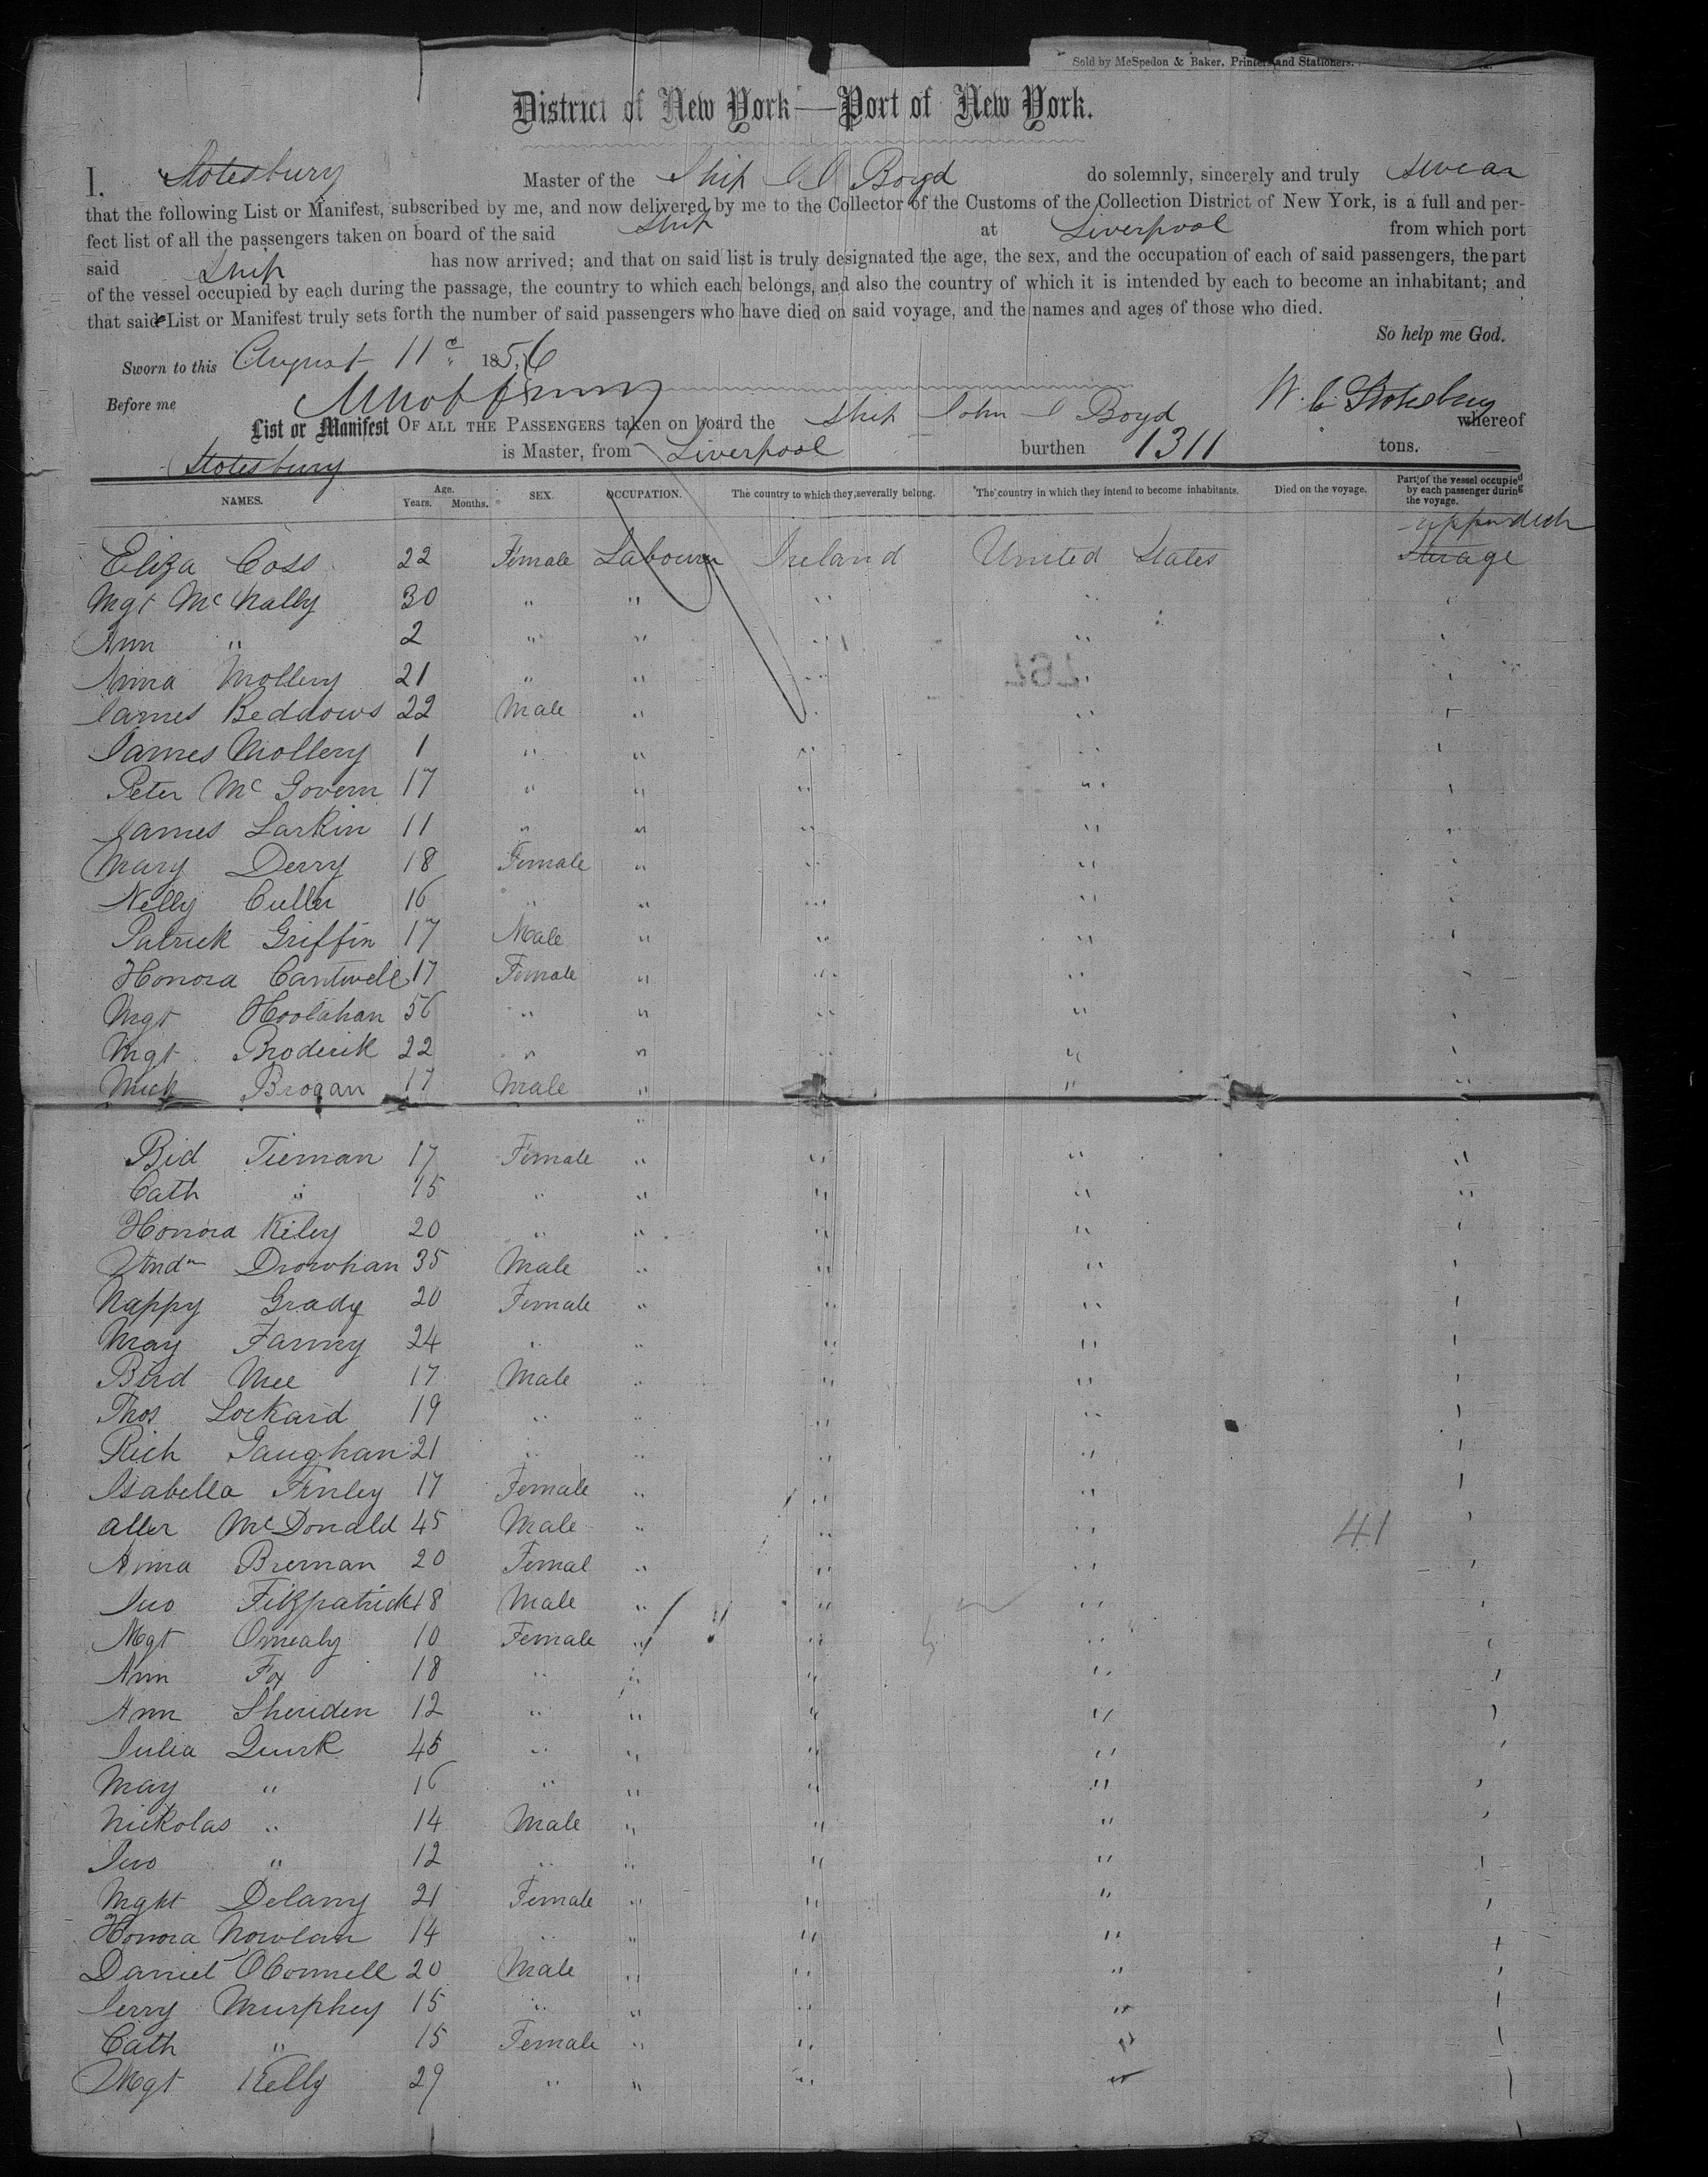 Sold by McSpedon & Baker, Printers and Stationers.
District of New York—Port of New York.
I. Stotesbury Master of the Ship J J Boyd do solemnly, sincerely and truly swear
that the following List or Manifest, subscribed by me, and now delivered by me to the Collector of the Customs of the Collection District of New York, is a full and per-
fect list of all the passengers taken on board of the said Ship at Liverpool from which port
said Ship has now arrived; and that on said list is truly designated the age, the sex, and the occupation of each of said passengers, the part
of the vessel occupied by each during the passage, the country to which each belongs, and also the country of which it is intended by each to become an inhabitant; and
that said List or Manifest truly sets forth the number of said passengers who have died on said voyage, and the names and ages of those who died.
So help me God.
Sworn to this August 11th 1856
Before me W. C. Stotesbury
List or Manifest OF ALL THE PASSENGERS taken on board the Ship John J Boyd whereof
Stotesbury is Master, from Liverpool burthen 1311 tons.
NAMES. Age. Years. Months. SEX. OCCUPATION. The country to which they severally belong. The country in which they intend to become inhabitants. Died on the voyage. Part of the vessel occupied by each passenger during the voyage.
upperdeck
Eliza Coss 22 Female Labourer Ireland United States Sterage
Mgt McNally 30 " " " " "
Ann " 2 " " " " "
Anna Mollery 21 " " " " "
James Beddows 22 Male " " " "
James Mollery 1 " " " " "
Peter McGovern 17 " " " " "
James Larkin 11 " " " " "
Mary Derry 18 Female " " " "
Nelly Culler 16 " " " " "
Patrick Griffin 17 Male " " " "
Honora Cantwell 17 Female " " " "
Mgt Hoolahan 56 " " " " "
Mgt Broderik 22 " " " " "
Mick Brogan 17 Male " " " "
Bid Tiernan 17 Female " " " "
Cath " 15 " " " " "
Honora Kiley 20 " " " " "
Andw Drowhan 35 Male " " " "
Nappy Grady 20 Female " " " "
May Fanny 24 " " " " "
Bird Mee 17 Male " " " "
Thos Lockard 19 " " " " "
Rich Gaughan 21 " " " " "
Isabella Finley 17 Female " " " "
Aller McDonald 45 Male " " " 41 "
Anna Brernan 20 Femal " " " "
Jno Fitzpatrick 18 Male " " " "
Mgt Omealy 10 Female " " " "
Ann Fox 18 " " " " "
Ann Sheriden 12 " " " " "
Julia Quirk 45 " " " " "
May " 16 " " " " "
Nickolas " 14 Male " " " "
Jno " 12 " " " " "
Mght Delany 21 Female " " " "
Honora Nowlan 14 " " " " "
Daniel OConnell 20 Male " " " "
Jerry Murphey 15 " " " " "
Cath " 15 Female " " " "
Mgt Kelly 29 " " " " "